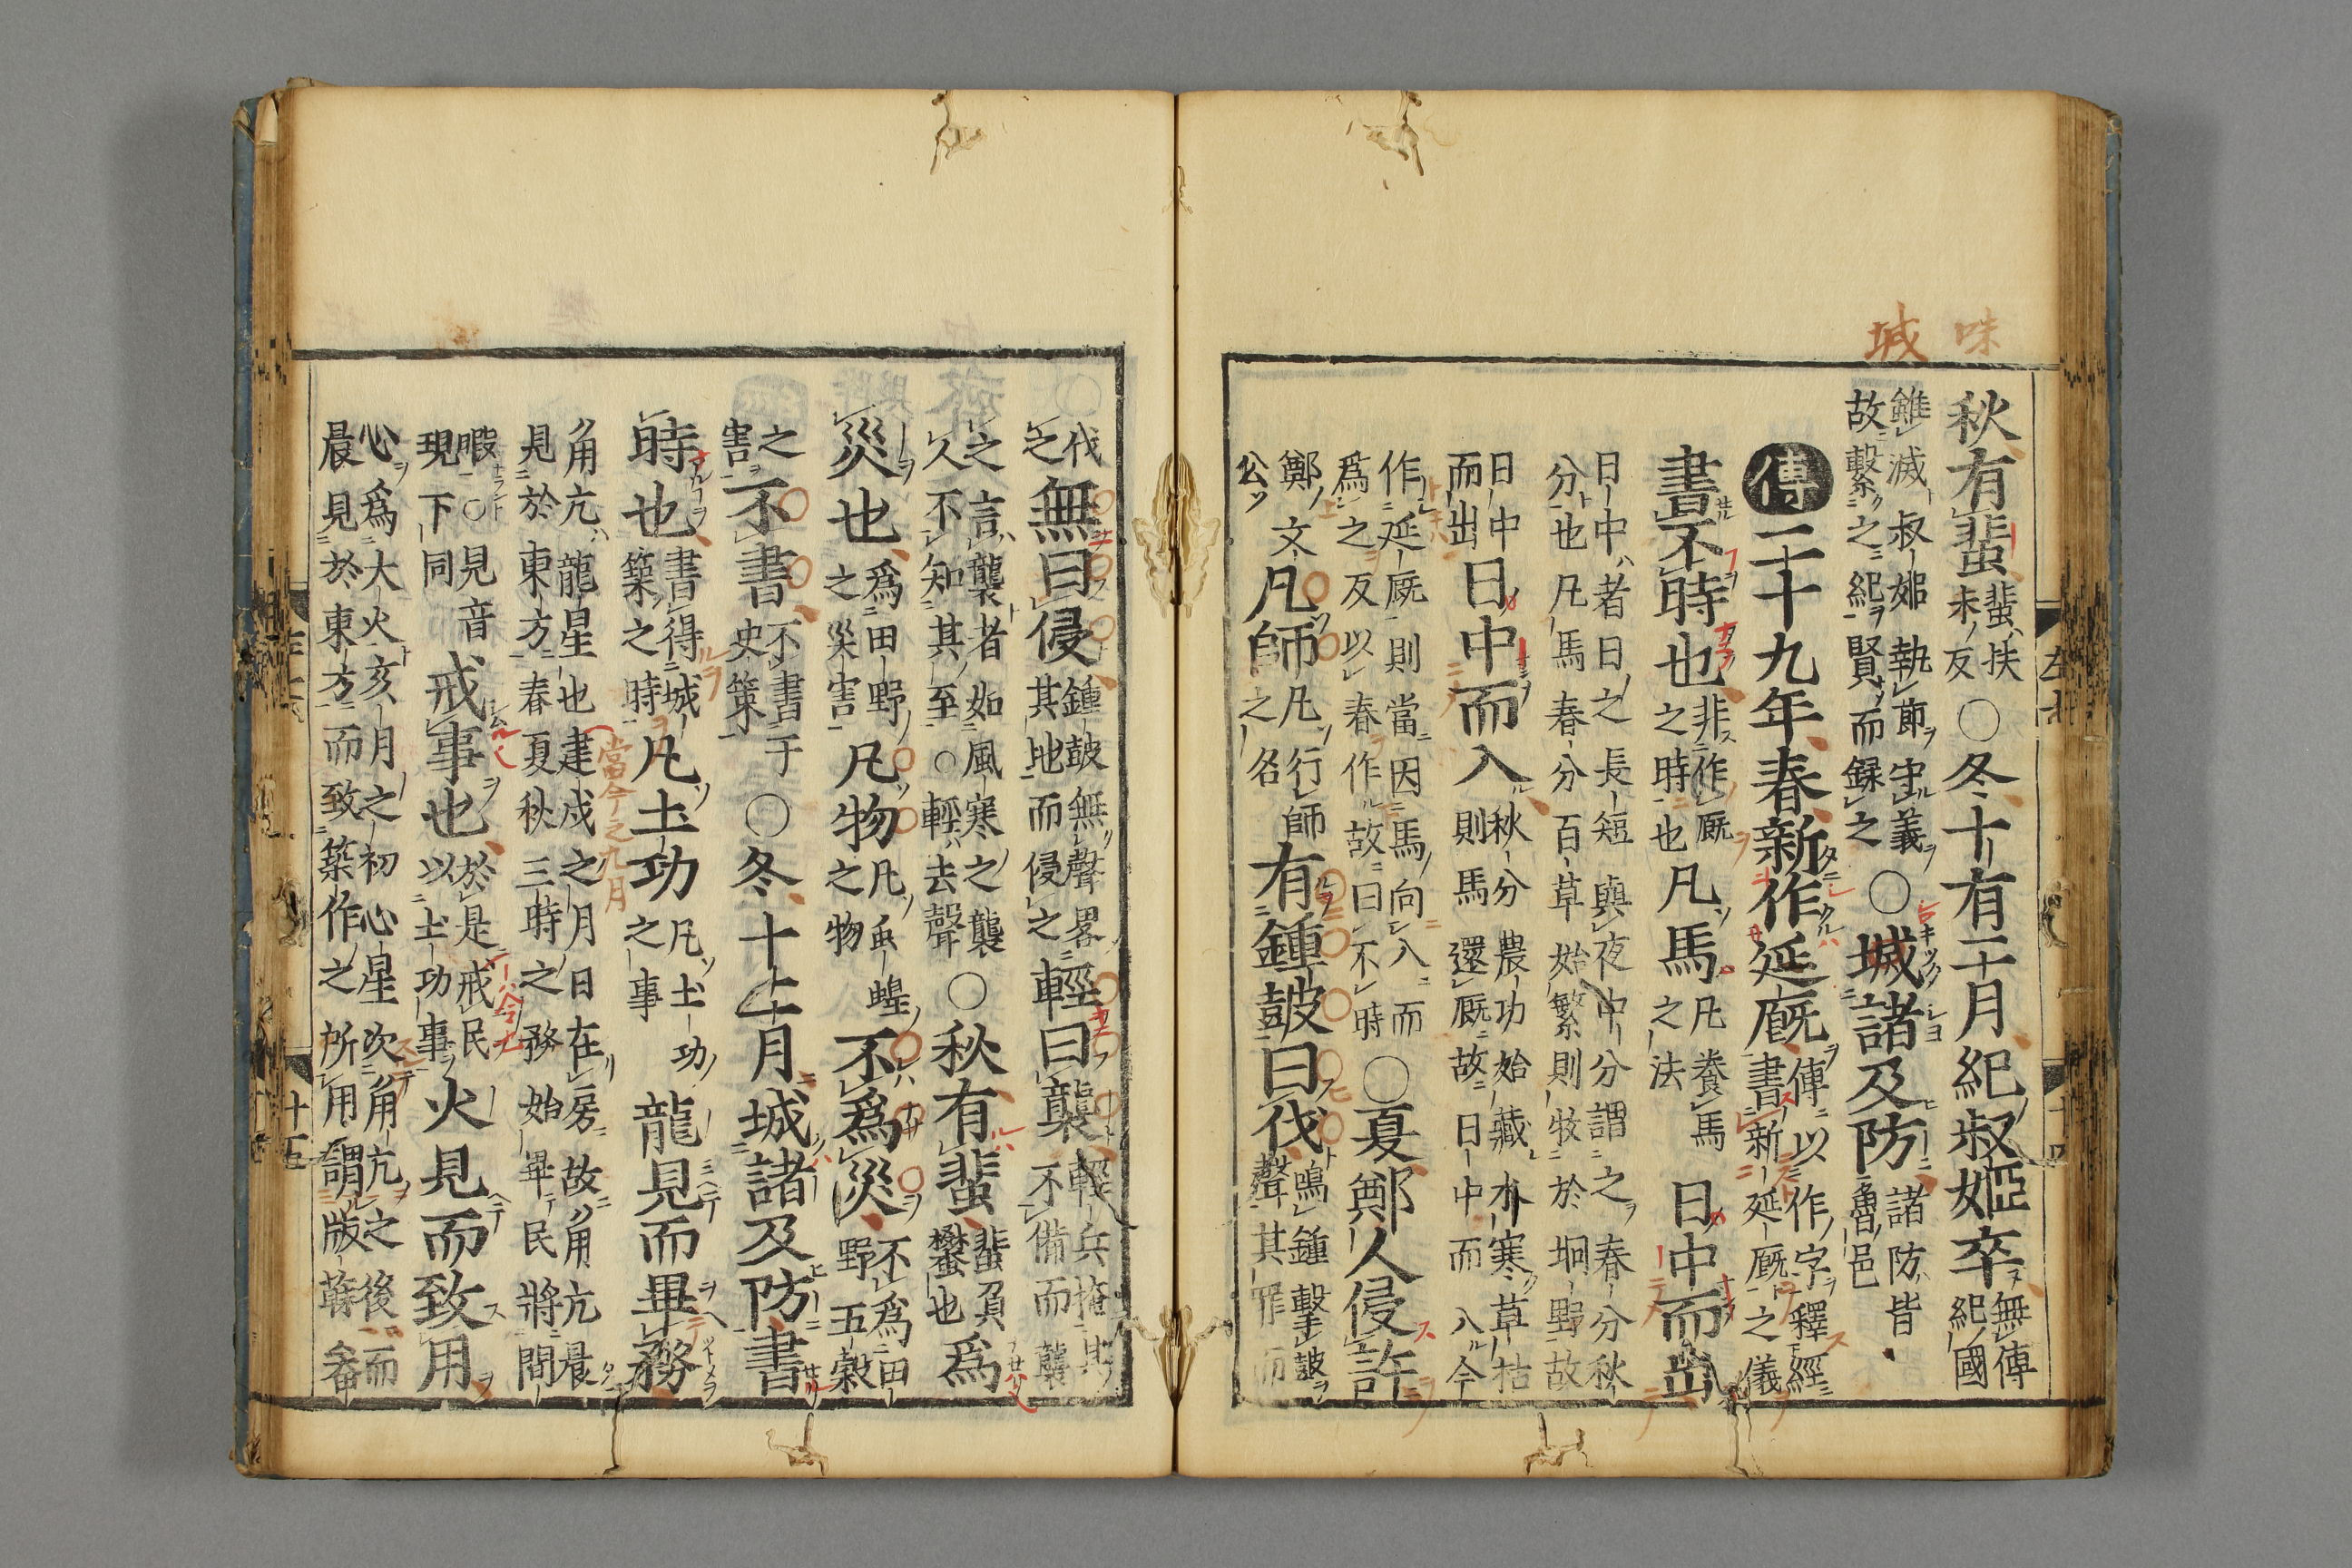 味
城
秋有蜚蜚扶未反〇冬十有二月紀叔姫卒無傳紀國
雖滅叔姫執節守義故繋之紀賢而録之〇城諸及防諸防皆魯邑
傳二十九年春新作延廐傳以作字釋經書新延廐之儀
書不時也非作廐之時也凡馬凡養馬之法日中而出
日中者日之長短與夜中分謂之春分秋分也凡馬春分百草始繁則牧於坰野故
日中而出日中而入秋分農功始藏水寒草枯則馬還廐故日中而入今
作延廐則當因馬向入而爲之反以春作故曰不時〇夏鄭人侵許
鄭文公凡師凡行師之名有鍾鼓曰伐鳴鍾擊鼓聲其罪而
伐之無曰侵鍾鼓無聲畧其地而侵之輕曰襲輕兵掩其不備而襲
之言襲者如風寒之襲久不知其至〇輕去聲〇秋有蜚蜚負蠜也爲
災也爲田野之災害凡物凡虫蝗之物不爲災不爲田野五穀
之害不書不書于史策〇冬十二月城諸及防書
時也書得城築之時凡土功凡土功之事龍見而畢務
角亢龍星也建戌之月日在房故角亢晨見於東方春夏秋三時之務始畢民將間
當今之九月
暇〇見音現下同戒事也於是戒民以土功事火見而致用
心爲大火亥月之初心星次角亢之後而晨見於東方而致築作之所用謂版蘇畚
十五